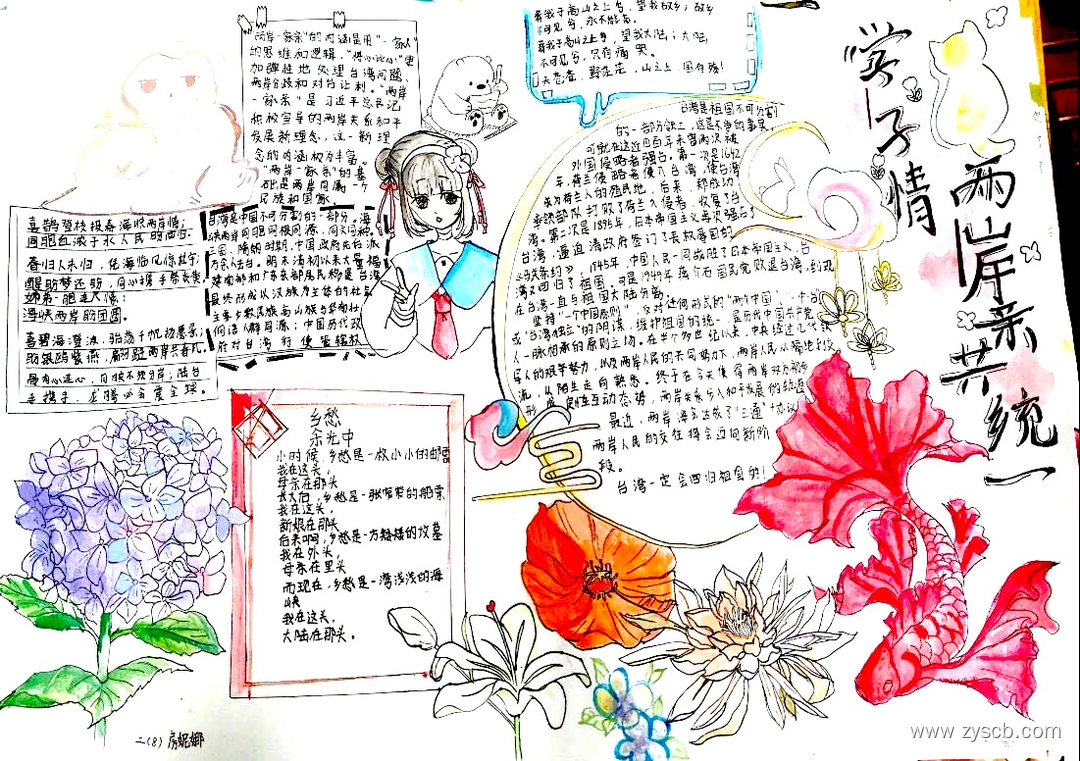 学子情
两岸亲共统一
两岸一家亲"的内涵是用"一家人"
的思维和逻辑,"将心比心"更
加弹性地处理台湾问题、
两岸分歧和对台让利。"两岸
一家亲"是习近平总书记
积极宣导的两岸关系和平
发展新理念,这一新理
念的内涵极为丰富。
"两岸一家亲"的基
础是两岸同属一个
民族和国家
葬我于高山之上兮,望我故乡;故乡
不可见兮,永不能忘。
葬我于高山之上兮,望我大陆;大陆
不可见兮,只有痛哭。
天苍苍,野茫茫,山之上,国有殇!
喜鹊登枝报春海峡两岸情;
同胞血浓于水人民盼团
春归人未归,
醒盼梦还盼,同心携手
姊弟一胞连大情;
海峡两岸盼团圆。
喜碧海澄波,
两岸共春风
台湾是中国不可分割的一部分。海
峡两岸同胞同根同源、同文同种
三国、隋朝时期,中国政府先后派
万余人去台。明末清初以来大量福
建南部和广东东部居民移垦台湾
最终形成以汉族为主体的社会
乡愁
余光中
小时候,乡愁是一枚小小的邮票
我在这头,
母亲在那头
长大后,乡愁是一张窄窄的船票
我在这头,
新娘在那头
后来啊,乡愁是一方矮矮的坟墓
我在外头,
母亲在里头
而现在,乡愁是一湾浅浅的海
峡
我在这头,
大陆在那头。
台湾是祖国不可分割
的一部分领土,这是不争的事实。
可就在这近四百年来曾两次被
外国侵略者强占。第一次是1642
年,荷兰侵略者侵入台湾,使台湾
成为荷兰人的殖民地,后来,郑成功
率领部队打败了荷兰入侵者,收复了台
湾。第二次是1895年,日本帝国主义再次强占了
台湾,逼迫清政府签订了丧权辱国的
《马关条约》;1945年,中国人民一同战胜了日本帝国主义,台
湾又回归了祖国。可是1949年蒋介石国民党败退台湾,到现
在台湾一直与祖国大陆分离
坚持"一个中国原则",反对任何形式的"两个中国"、"一中一台"
或"台湾独立"的阴谋,维护祖国的统一,是历代中国共产党
人一脉相承的原则立场。在半个多世纪以来,中央经过几代领
导人的艰辛努力,以及两岸人民的共同努力下,两岸人民从隔绝到交
流,从陌生走向熟悉。终于在今天使得两岸双方初步
形成良性互动态势,两岸关系步入和平发展的轨道
最近,两岸海会达成了"三通"协议
两岸人民的交往将会迈向新阶
段。
台湾一定会回归祖国的!
二(8) 房妮娜
www.zyscb.com